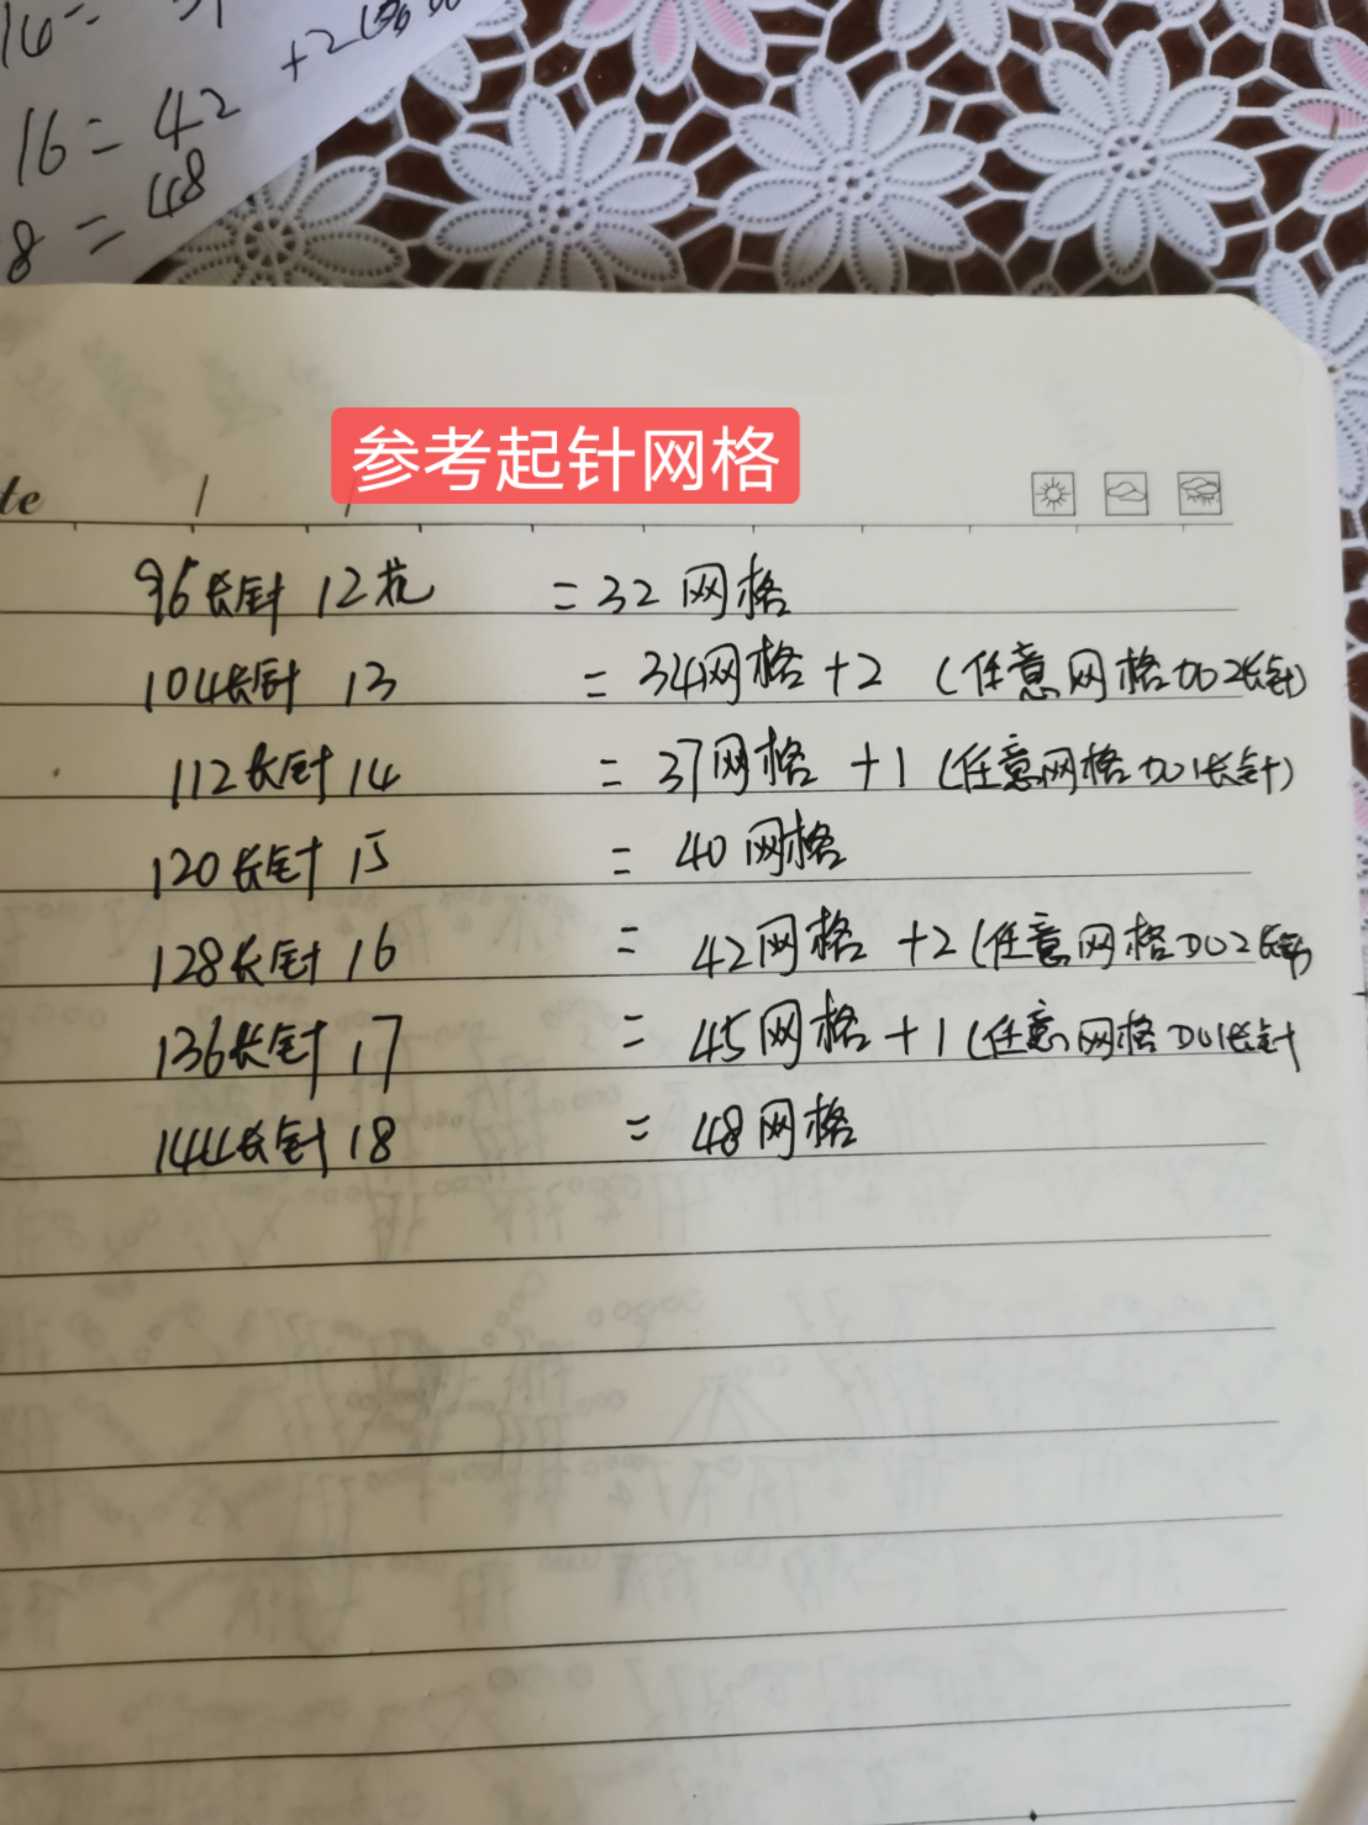 16=
16=42 +2
8=48
参考起针网格
te / /
96长针 12花 =32网格
104长针 13 =34网格+2 (任意网格加2长针)
112长针 14 =37网格+1 (任意网格加1长针)
120长针 15 =40网格
128长针 16 =42网格+2 (任意网格加2长针)
136长针 17 =45网格+1 (任意网格加1长针
144长针 18 =48网格